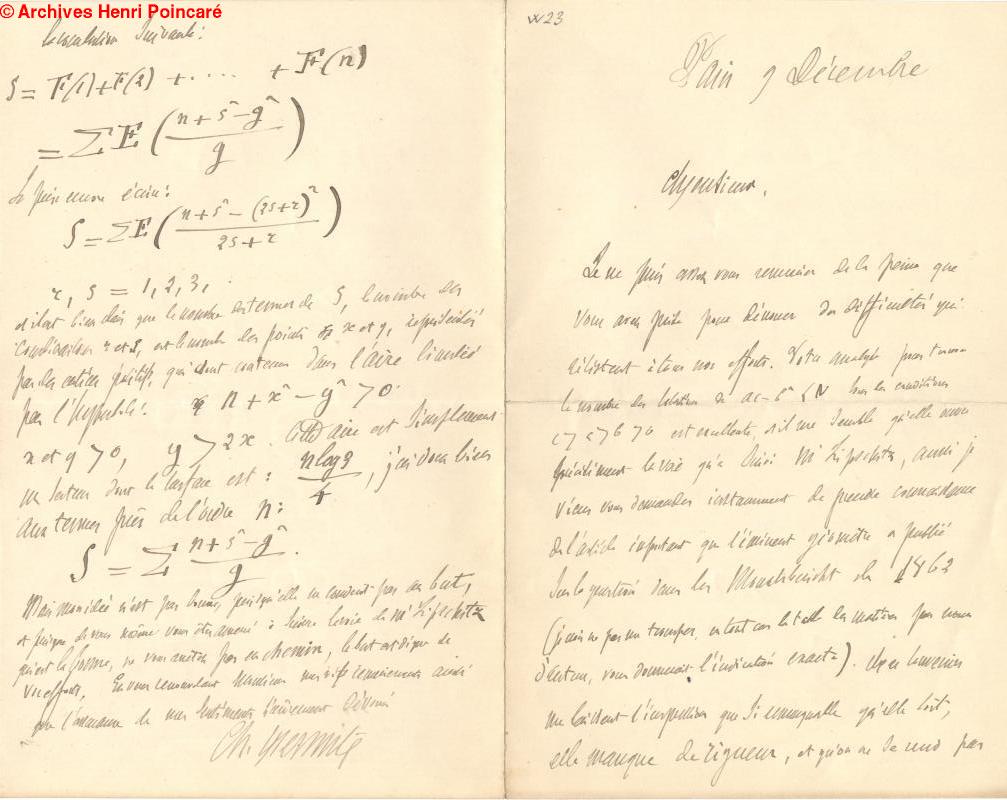 © Archives Henri Poincaré
suivante :
S = F(1) + F(2) + .... + F(n)
= ΣE((n + s² - g²)/g)
Je puis encore écrire :
S = ΣE((n + s² - (2s+r)²)/(2s+r))
r, s = 1, 2, 3, .
et il est bien clair que le nombre des termes de S, le nombre des
combinaisons r et s, est le nombre des points x et y, représentés
par des entiers positifs, qui sont contenus dans l'aire limitée
par l'hyperbole : n + x² - y² > 0
x et y > 0, y > 2x. Cette aire est simplement
un secteur dont la surface est : n log 3 / 4, j'ai donc bien
aux termes près de l'ordre n :
S = Σ (n + s² - g²)/g.
Mais mon idée n'est pas bonne, puisqu'elle ne conduit pas au but,
et puisque de vous même vous êtes amené à suivre la voie de Mr Lipschitz
qui est la bonne, ne vous arrêtez pas en chemin, le but est digne de
vos efforts. En vous renouvelant Monsieur mes vifs remerciements ainsi
que l'assurance de mes sentiments sincèrement dévoués
Ch. Hermite
W23
Paris 9 Décembre
Monsieur,
Je ne puis assez vous remercier de la peine que
vous avez prise pour triompher des difficultés qui
résistent à tous nos efforts. Votre analyse pour trouver
le nombre des solutions de ac - b² < N sous les conditions
c > a > b > 0 est excellente, et il me semble qu'elle ouvre
précisément la voie qu'a suivi Mr Lipschitz, aussi je
viens vous demander instamment de prendre connaissance
de l'article important que l'éminent géomètre a publié
sur la question dans les Monatsbericht de 1862
(je crois ne pas me tromper, en tout cas la table des matières par noms
d'auteurs, vous donnerait l'indication exacte). Mes souvenirs
me laissent l'impression que si remarquable qu'elle soit,
elle manque de rigueur, et qu'on ne se rend pas